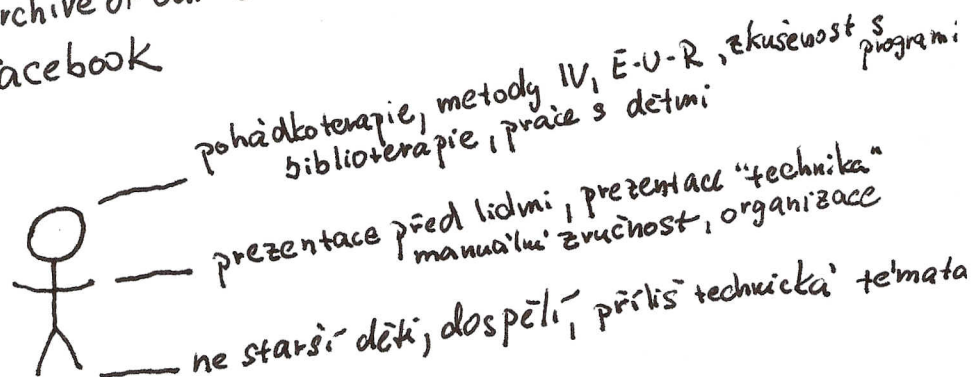 facebook
pohádkoterapie, metody IV, E-U-R, zkušenost s programi
biblioterapie, práce s dětmi
prezentace před lidmi, prezentace "technika"
manuální zručnost, organizace
ne starší děti, dospělí, příliš technická témata